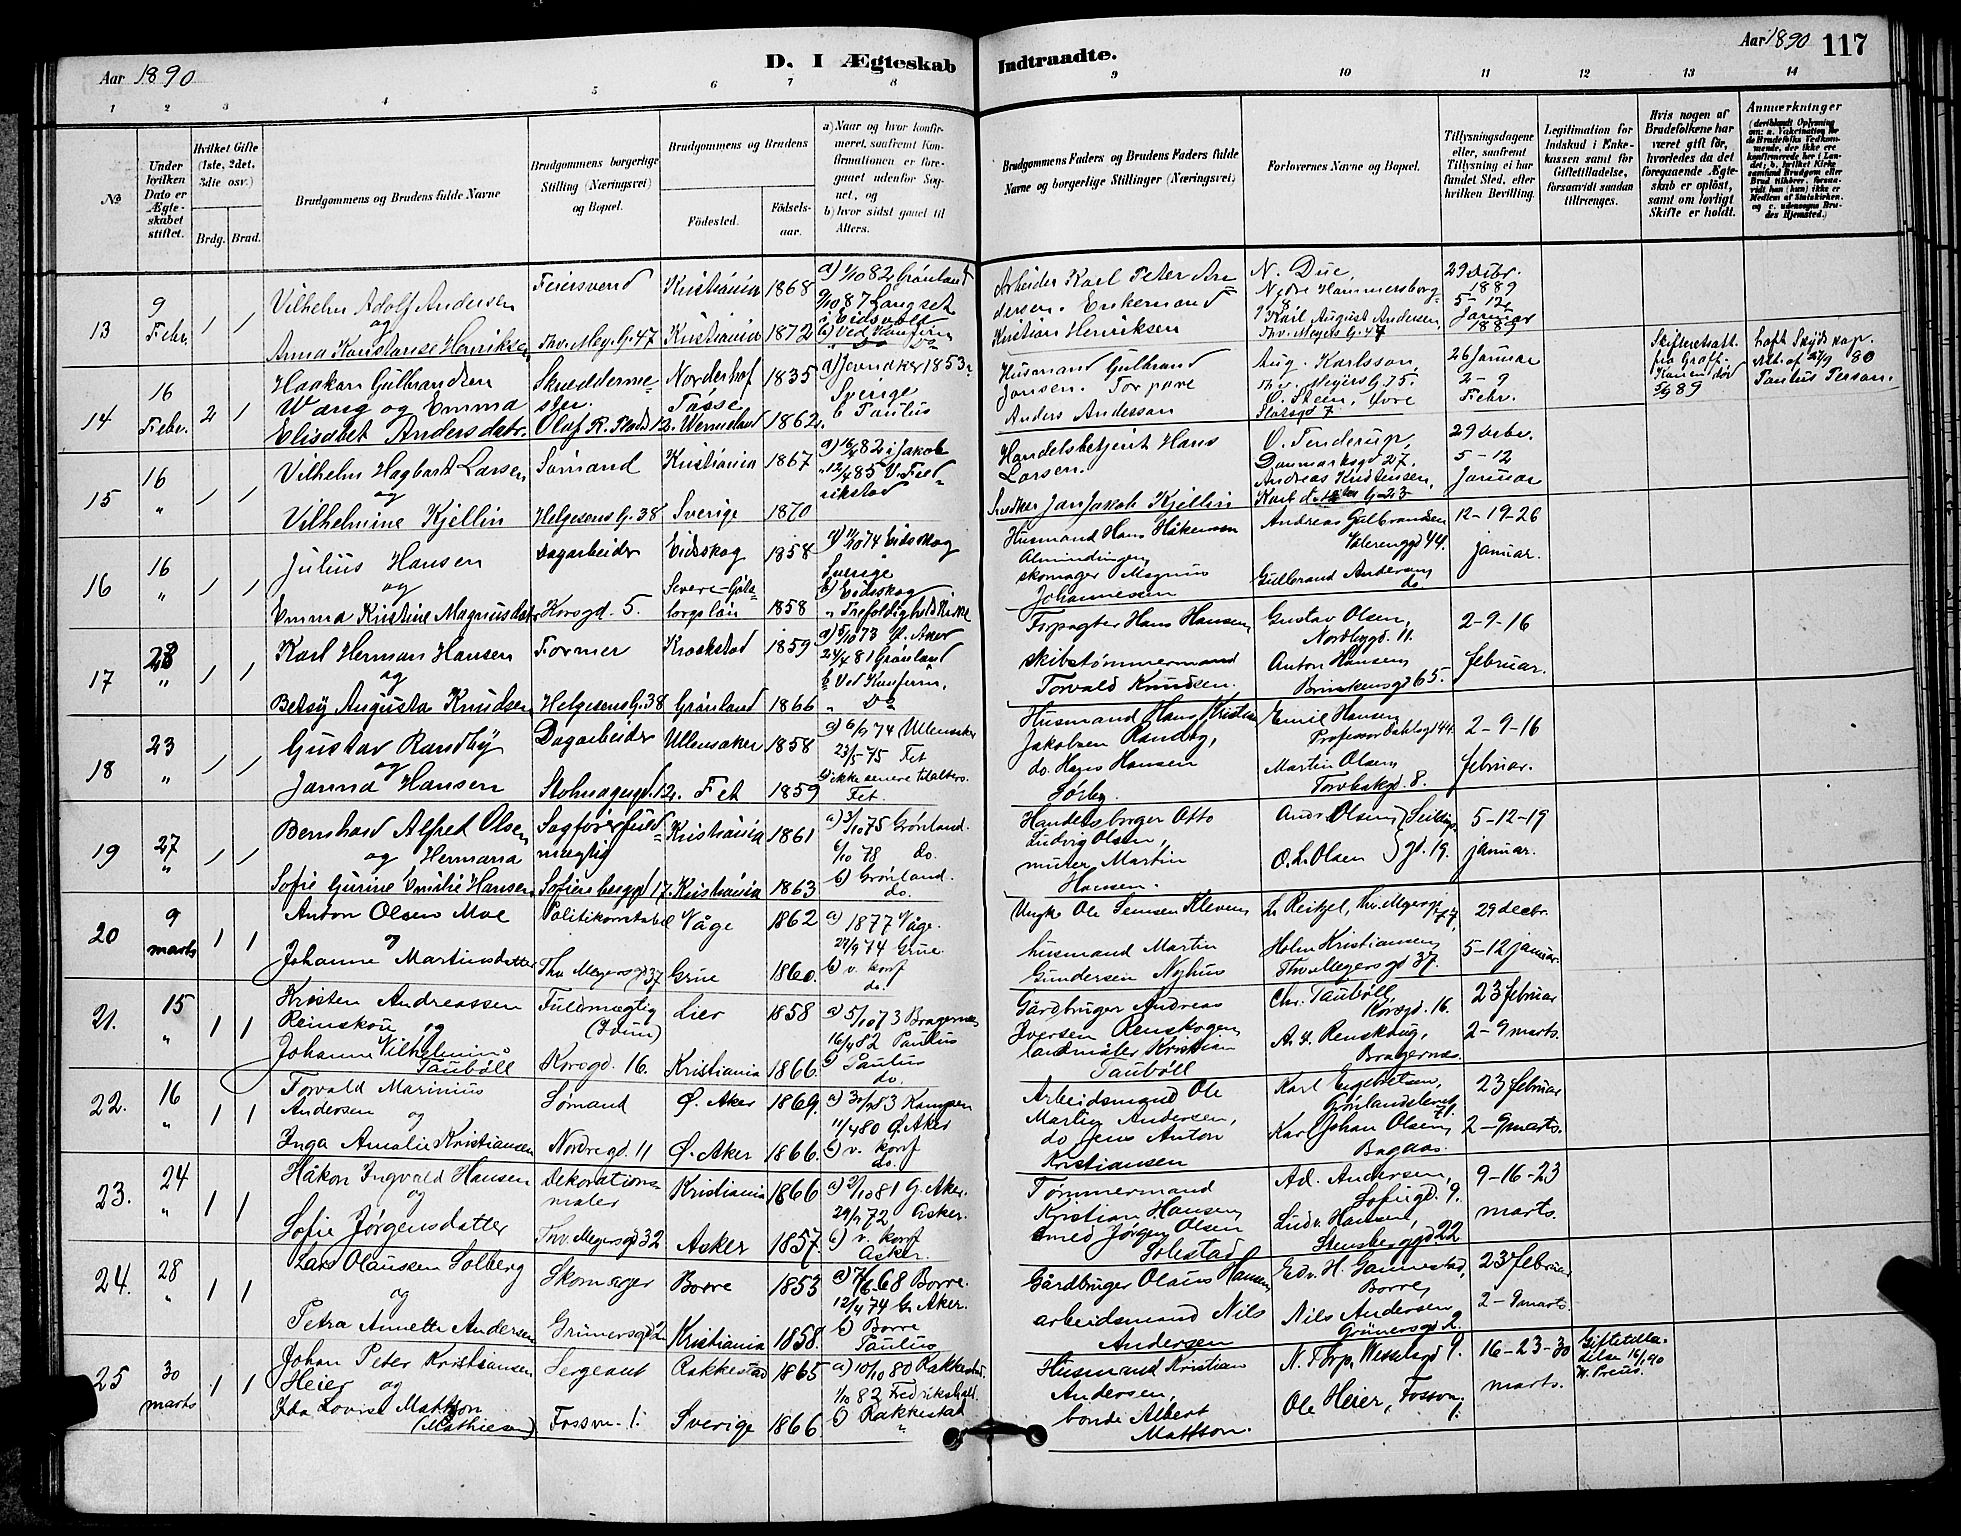 Aar 1890
D. I Ægteskab Indtraadte.
Aar 1890 117
1 2 3 4 5 6 7 8 9 10 11 12 13 14
№
Under hvilken Dato er Ægteskabet stiftet.
Hvilket Gifte (1ste, 2det, 3die osv.)
Brdg. Brud.
Brudgommens og Brudens fulde Navne
Brudgommens borgerlige Stilling (Næringsvei) og Bopæl.
Brudgommens og Brudens
Fødested.
Fødselsaar.
a) Naar og hvor konfirmeret, saafremt Konfirmationen er foregaaet udenfor Sognet, og
b) hvor sidst gaaet til Alters.
Brudgommens Faders og Brudens Faders fulde Navne og borgerlige Stillinger (Næringsvei)
Forlovernes Navne og Bopæl.
Tillysningsdagene eller, saafremt Tillysning ei har fundet Sted, efter hvilken Bevilling.
Legitimation for Indskud i Enkekassen samt for Giftetilladelse, forsaavidt saadan tiltrænges.
Hvis nogen af Brudefolkene har været gift før, hvorledes da det foregaaende Ægteskab er opløst, samt om lovligt Skifte er holdt.
Anmærkninger
13 9 Febr. 1 1
Vilhelm Adolf Andersen
og
Anna Konstanse Henriksen
Feiersvend
Thv. Mey. G. 47
Kristiania 1868
Kristiania 1872
a) 1/10 82 Grønland
9/10 87 Langset
i Eidsvold
b) Ved Konfirm
Do
Arbeider Karl Peter Andersen. Enkemand
Kristian Henriksen
N. Due,
Nedre Hammersborg
Karl August Andersen,
Thv. Meyers G. 47
29 decbr. 1889
5-12
Januar
1889
14 16 Febr. 2 1
Haakon Gulbrandsen
Wang og Emma
Elisabet Andersdatr.
Skreddermester.
Olaf R. Plads 12.
Norderhof 1835
Tøsse
Wermeland 1862.
Jevnaker 1853
Sverige
b Paulus
Husmand Gulbrand
Jansen. Torpare
Anders Andersson
Aug. Karlsson
Thv. Meyers G. 75.
O. Steen, Øvre
Slotsgd 7
26 Januar
2-9
Febr.
Skifteretsatt.
fra
Konen død
5/9 89
Paulus Person.
15 16 " 1 1
Vilhelm Hagbart Larsen
og
Vilhelmine Kjellin
Sømand
Helgesens G. 38
Kristiania 1867
Sverige 1870
a) 16/4 82 i Jakob
12/4 85 V. Fredrikstad
Handelsbetjent Hans
Larsen.
Snedker Jan Jakob Kjellin
O. Tenderup,
Danmarksgd 27.
Andreas Kristensen,
Karl d. 12tes G. 23
29 decbr.
5-12
Januar
16 16 " 1 1
Julius Hansen
og
Emma Kristine Magnusdatr
Dagarbeider
Korsgd. 5.
Eidskog 1858
1858
a) 11/10 74 Eidskog
Sverige
b) Eidskog
" Trefoldighedskirke
Husmand Hans Håkensen
Almindingen
skomager Magnus
Johannesen
Andreas Gulbrandsen
Vålerenggd 44.
Gulbrand Andersen
do
12-19-26
januar.
17 23 " 1 1
Karl Herman Hansen
og
Betsy Augusta Knudsen
Former
Helgesens G. 38
Krokstad 1859
Grønland 1866
a) 5/10 73 Ø. Aker
24/4 81 Grønland
b) Ved Konfirm.
" Do
Forpagter Hans Hansen
skibstømmermand
Torvald Knudsen.
Gustav Olsen,
Nordbygd. 11.
Anton Hansen
Brinkensgd 65.
2-9-16
februar.
18 23 " 1 1
Gustav Randby
og
Janna Hansen
Dagarbeider
Stolmagergd. 12.
Ullensaker 1858
Fet 1859
a) 6/9 74 Ullensaker
23/5 75 Fet
b) ikke senere tilalters.
Fet.
Husmand Hans Kristian
Jakobsen Randby,
do. Hans Hansen
Sørby.
Emil Hansen
Professor Dahlsgd 44.
Martin Olsen
Torvbakgd. 8.
2-9-16
februar.
19 27 " 1 1
Bernhard Alfred Olsen
og Hermana
Sofie Gurine Emilie Hansen
Sagførerfuldmægtig
Sofienberggd 17.
Kristiania 1861
Kristiania 1863
a) 3/10 75 Grønland.
6/10 78 do.
b) Grønland.
do.
Handelsborger Otto
Ludvig Olsen,
murer Martin
Hansen.
Ands Olsen
O. L. Olsen gd. 19.
5-12-19
januar.
20 9 marts 1 1
Anton Olsen Moe
og
Johanne Martinsdatter
Politikonstabel
Thv. Meyersgd 37
Våge 1862
Grue 1860.
a) 1877 Våge.
27/9 74 Grue
b) v. konf
do.
Ungk. Ole Semsen Kleven
husmand Martin
Gundersen Nyhus
L. Reitzel, Thv. Meyersgd 77,
Holm Kristiansen
Thv. Meyersgd 37.
29 decbr.
5-12 januar.
21. 15 " 1 1
Kristen Andreassen
Reinskou og
Johanne Vilhelmine
Taubøll
Fuldmægtig
(Idun)
Korsgd. 16.
Lier 1858
Kristiania 1866.
a) 5/10 73 Bragernes
16/4 82 Paulus
b) Paulus
do.
Gårdbruger Andreas
Iversen Renskogen
landmåler Kristian
Taubøll
Chr. Taubøll,
Korsgd. 16.
A. H. Renskoug,
Bragernes.
23 februar
2-9 marts.
22. 16 " 1 1
Torvald Marinius
Andersen og
Inga Amalie Kristiansen
Sømand
Nordregd. 11
Ø. Aker 1869.
Ø. Aker 1866.
a) 30/9 83 Kampen
11/4 80 Ø. Aker
b) v. konf
do.
Arbeidsmand Ole
Martin Andersen,
do Jens Anton
Kristiansen
Karl Engebretsen,
Grønlandsleret 71.
Karl Johan Olsen
Bagaas.
23 februar
2-9 marts.
23. 24 " 1 1
Håkon Ingvald Hansen
og
Sofie Jørgensdatter
Dekorationsmaler
Thv. Meyersgd 32
Kristiania 1866
Asker 1857.
a) 2/10 81 G. Aker.
29/9 72 Asker.
b) v. konf
Asker.
Tømmermand
Kristian Hansen
smed Jørgen Olsen
Solestad
Ad. Andersen,
Sofiegd. 9.
Ludv. Hansen,
Stensberggd. 22
9-16-23
marts.
24. 28 " 1 1
Lars Olausen Solberg
og
Petra Annette Andersen
Skomager
Grünersgd 2
Borre 1853
Kristiania 1858.
a) 7/6 68 Borre.
12/4 74 G. Aker.
b) Borre
Paulus
Gårdbruger Olaus Hansen
arbeidsmand Nils
Andersen
Edv. H. Gannestad,
Borre,
Nils Andersen
Grünersgd 2.
23 februar
2-9 marts.
25 30 marts 1 1
Johan Peter Kristiansen
Heier og
Ida Lovise Mattson
(Mathiesen)
Sergeant
Fossvn. 1.
Rakkestad 1865
Sverige 1866
a) 10/10 80 Rakkestad.
1/10 82 Fredrikshald.
b) Rakkestad
"
Husmand Kristian
Andersen,
bonde Albert
Mattson.
N. Thrp, Wesselsgd 9.
Ole Heier, Fossvn 1.
16-23-30
marts.
Giftetilladelse 16/1 90
W. Preus.